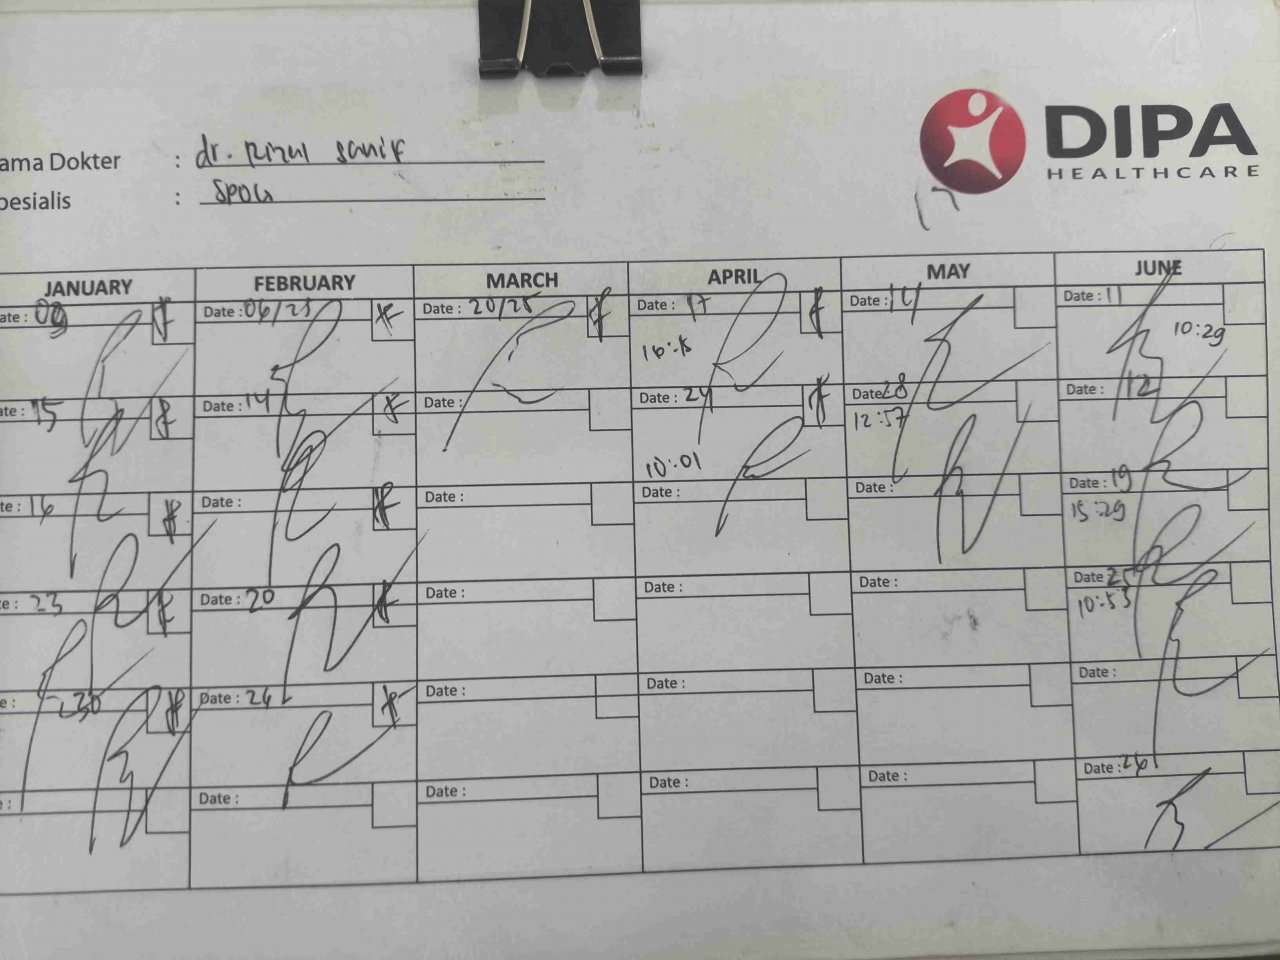 DIPA
HEALTHCARE
ama Dokter : dr. Rizal Sanif
pesialis : SPOG
17
JANUARY FEBRUARY MARCH APRIL MAY JUNE
ate : Date : 06/25 Date : 20/25 Date : 17 Date : 14 Date : 11
16:18 10:29
ate : 15 Date : 14 Date : Date : 24 Date : 28 12
10:01 12:57
te : 16 Date : Date : Date : Date : Date : 19
15:29
e : 23 Date : 20 Date : Date : Date : Date : 25
10:53
e : 30 Date : 26 Date : Date : Date : Date :
: Date : Date : Date : Date : Date : 26